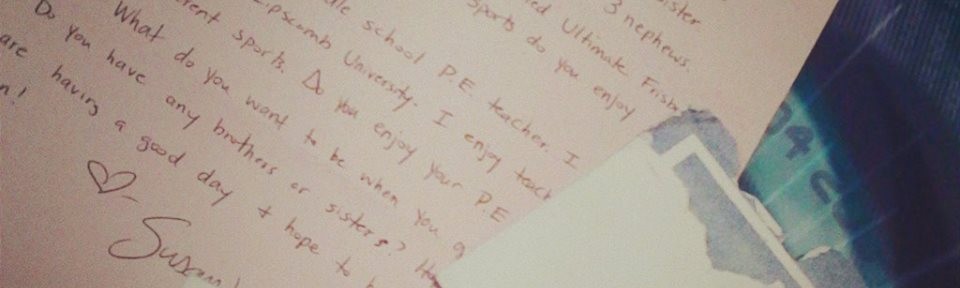 ister
3 nephews.
ed Ultimate Frisb
sports do you enjoy
dle school P.E. teacher. I
Lipscomb University. I enjoy teach
erent sports. Do you enjoy your P.E
What do you want to be when you g
Do you have any brothers or sisters?
are having a good day + hope to
n!
♡- Susan
04